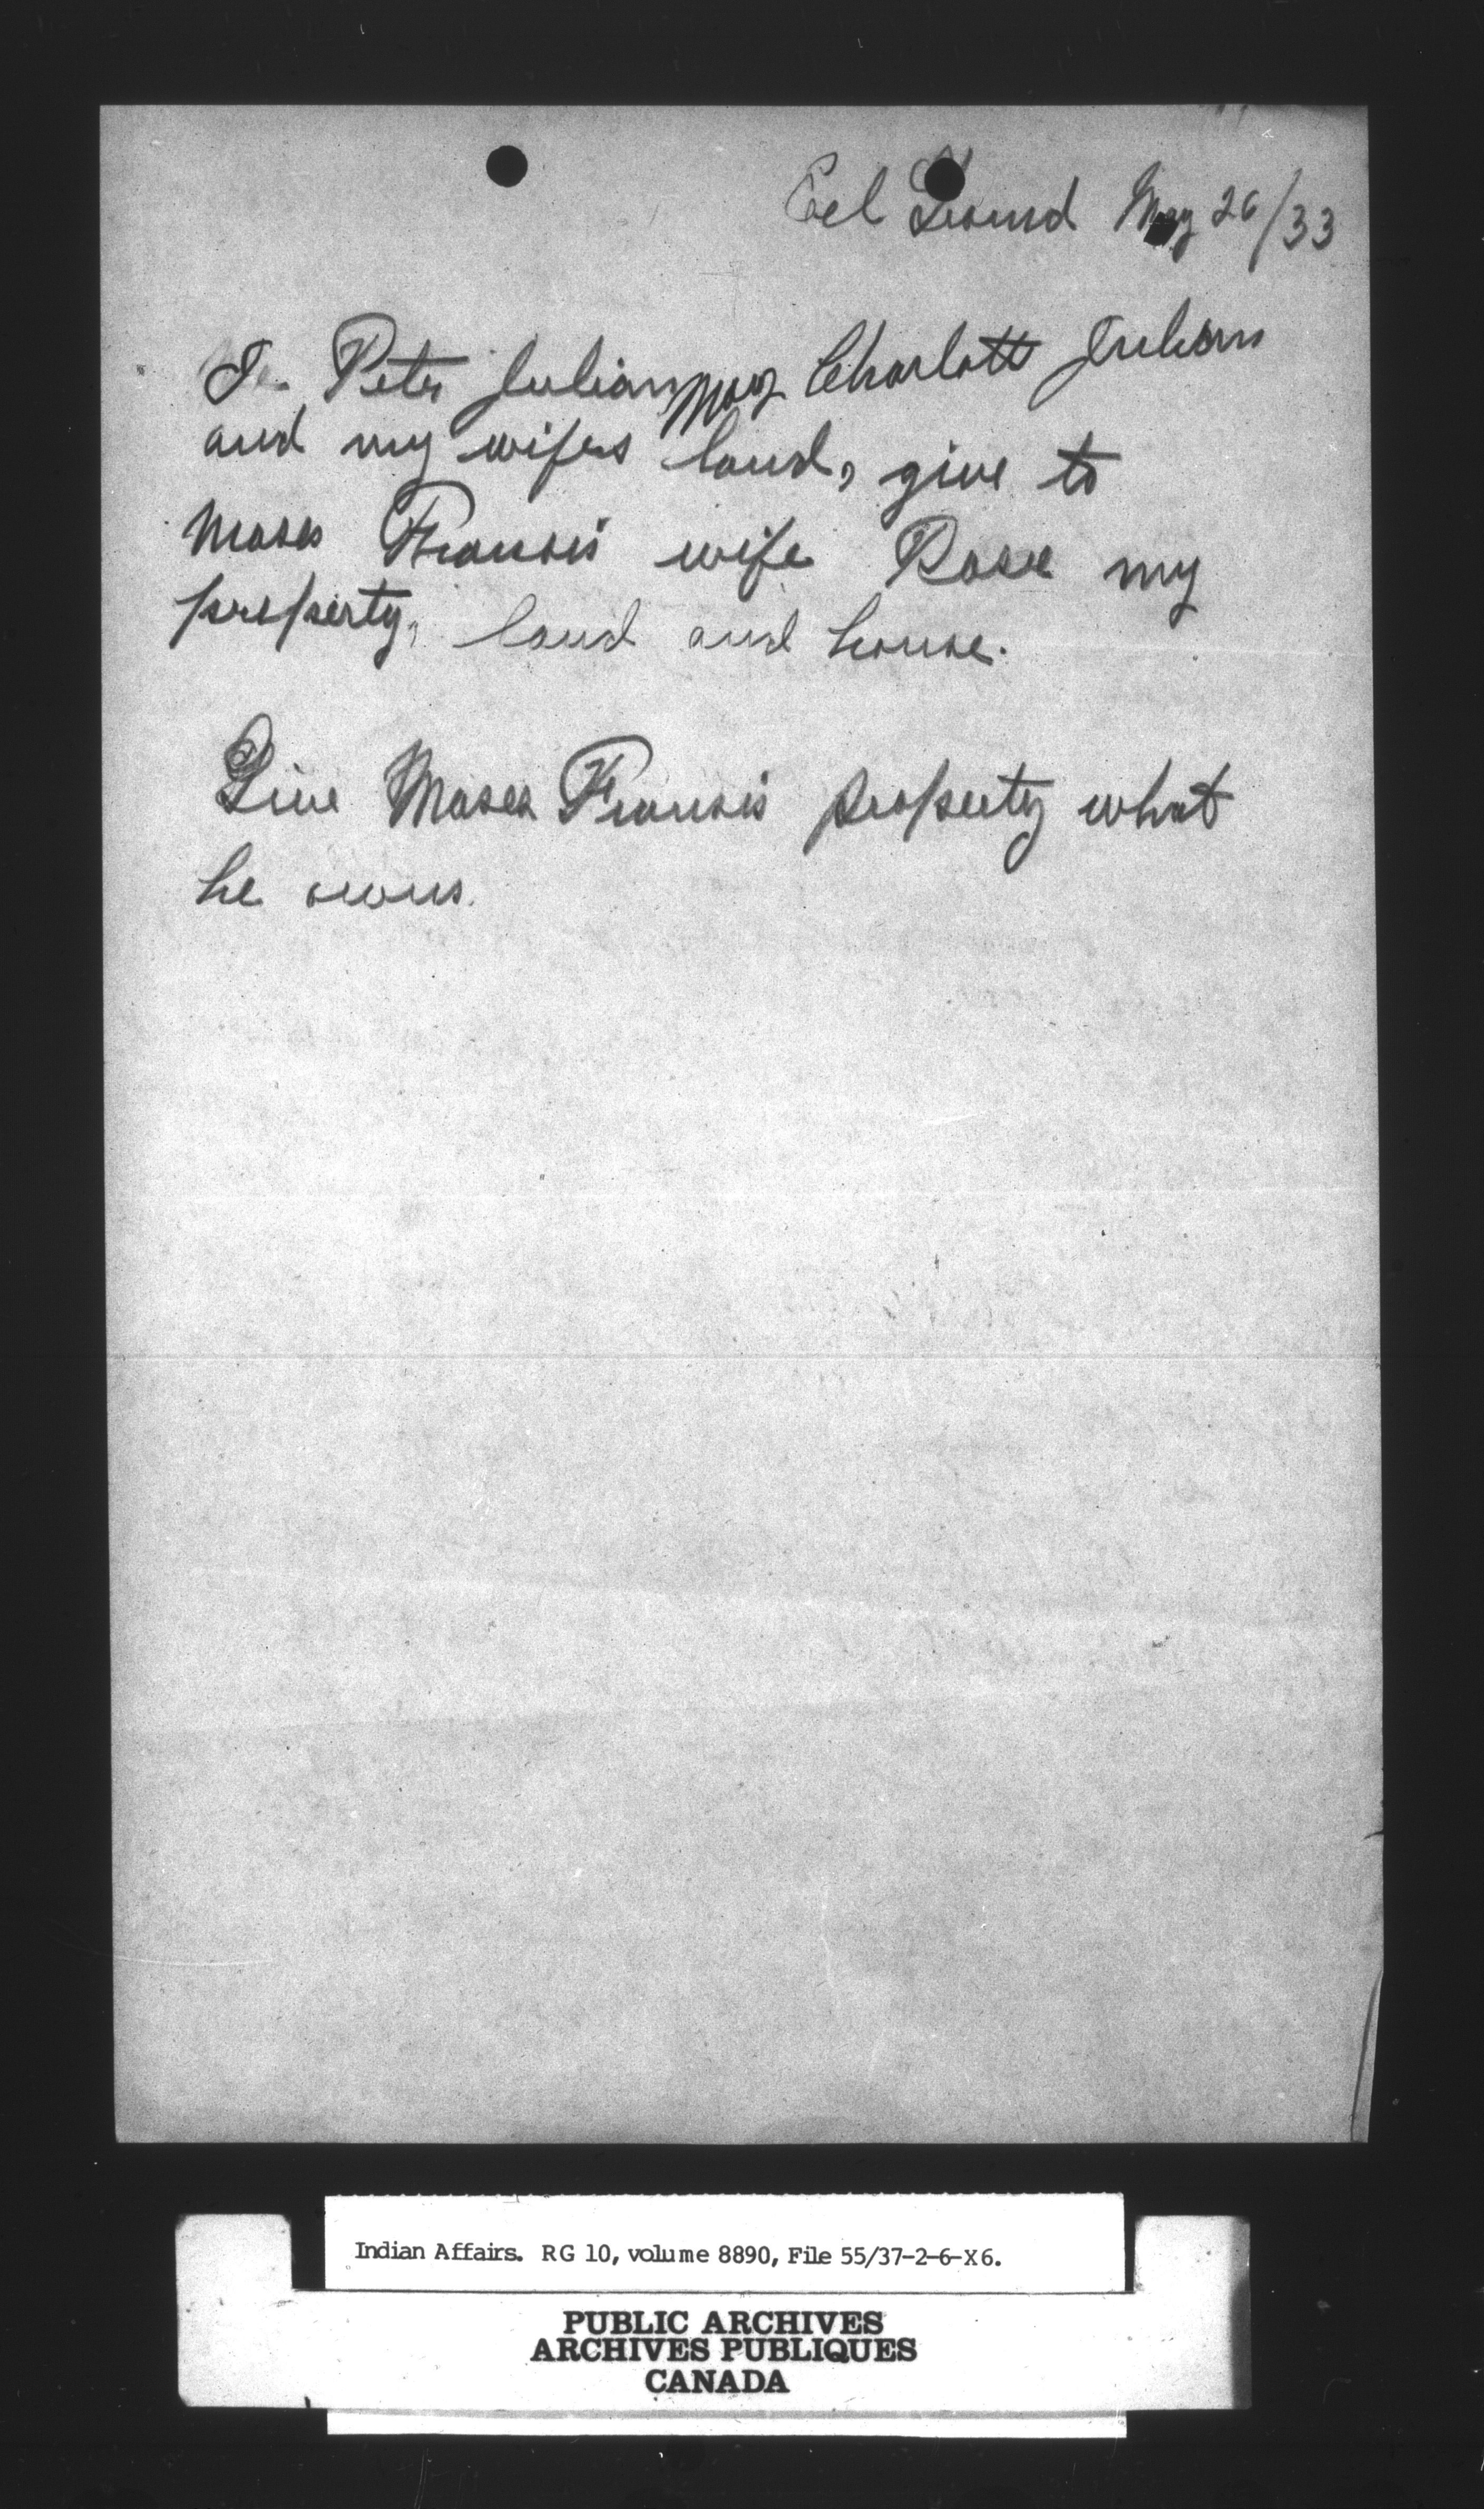 Eel Ground May 26/33
I. Peter Julian May Charlott Julian
and my wifes land, give to
Moses Francis wife Rose my
property, land and house.
Give Moses Francis property what
he owns.
Indian Affairs. RG 10, volume 8890, File 55/37-2-6-X6.
PUBLIC ARCHIVES
ARCHIVES PUBLIQUES
CANADA